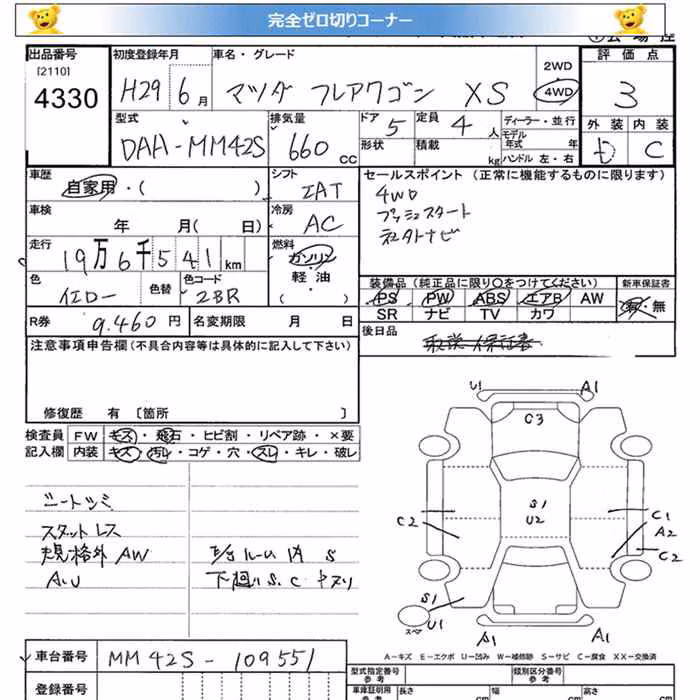 完全ゼロ切りコーナー
出品番号
[2110]
4330
初度登録年月
H29 6月
車名・グレード
マツダ フレアワゴン XS
2WD
4WD
評価点
3
型式
DAA-MM42S
排気量
660 CC
ドア
5
定員
4人
形状
積載
kg
ディーラー・並行
モデル年式 年
ハンドル 左・右
外装
D
内装
C
車歴
自家用・( )
シフト
IAT
車検
年 月( 日)
冷房
AC
走行
19万6千541km
燃料
ガソリン
軽・油
( )
色
イエロー
色替
色コード
2BR
R券
9.460円
名変期限 月 日
セールスポイント（正常に機能するものに限ります）
4WD
プッシュスタート
社外ナビ
装備品（純正品に限り○をつけてください）
PS PW ABS エアB AW
SR ナビ TV カワ
新車保証書
有・無
後日品
取説 保証書
注意事項申告欄(不具合内容等は具体的に記入して下さい)
修復歴 有 〔箇所 〕
検査員
記入欄
FW キズ・飛石・ヒビ割・リペア跡・×要
内装 キズ・汚レ・コゲ・穴・スレ・キレ・破レ
シートシミ
スタットレス
規格外AW
A.U
E/gルーム内 S
下廻りS.C キスリ
U1
A1
C3
S1
U2
C2
C1
A2
C2
S1
U1
スペア
A1
A1
A－キズ E－エクボ U－凹み W－補修跡 S－サビ C－腐食 XX－交換済
車台番号
MM42S-109551
登録番号
型式指定番号
参考
類別区分番号
参考
車庫証明用
参考
長さ
cm
幅
cm
高さ
cm